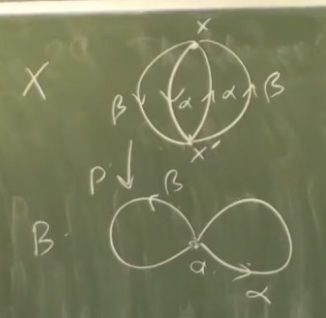 x
X
β α α β
x'
p
β
B.
a.
α